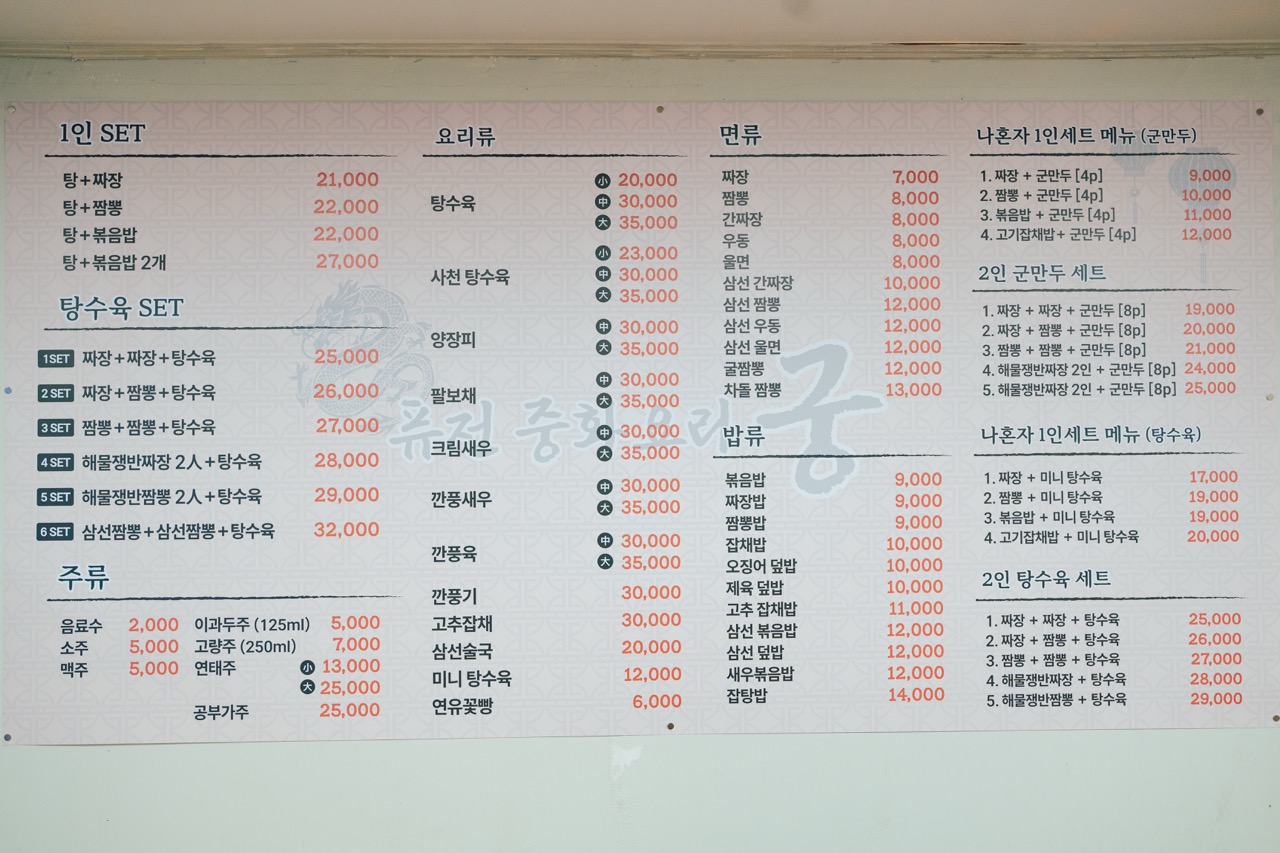 1인 SET
탕+짜장 21,000
탕+짬뽕 22,000
탕+볶음밥 22,000
탕+볶음밥 2개 27,000
탕수육 SET
1 SET 짜장+짜장+탕수육 25,000
2 SET 짜장+짬뽕+탕수육 26,000
3 SET 짬뽕+짬뽕+탕수육 27,000
4 SET 해물쟁반짜장 2人+탕수육 28,000
5 SET 해물쟁반짬뽕 2人+탕수육 29,000
6 SET 삼선짬뽕+삼선짬뽕+탕수육 32,000
주류
음료수 2,000
소주 5,000
맥주 5,000
이과두주 (125ml) 5,000
고량주 (250ml) 7,000
연태주 小 13,000
大 25,000
공부가주 25,000
요리류
탕수육 小 20,000
中 30,000
大 35,000
사천 탕수육 小 23,000
中 30,000
大 35,000
양장피 中 30,000
大 35,000
팔보채 中 30,000
大 35,000
크림새우 中 30,000
大 35,000
깐풍새우 中 30,000
大 35,000
깐풍육 中 30,000
大 35,000
깐풍기 30,000
고추잡채 30,000
삼선술국 20,000
미니 탕수육 12,000
연유꽃빵 6,000
면류
짜장 7,000
짬뽕 8,000
간짜장 8,000
우동 8,000
울면 8,000
삼선 간짜장 10,000
삼선 짬뽕 12,000
삼선 우동 12,000
삼선 울면 12,000
굴짬뽕 12,000
차돌 짬뽕 13,000
밥류
볶음밥 9,000
짜장밥 9,000
짬뽕밥 9,000
잡채밥 10,000
오징어 덮밥 10,000
제육 덮밥 10,000
고추 잡채밥 11,000
삼선 볶음밥 12,000
삼선 덮밥 12,000
새우볶음밥 12,000
잡탕밥 14,000
나혼자 1인세트 메뉴 (군만두)
1. 짜장 + 군만두 [4p] 9,000
2. 짬뽕 + 군만두 [4p] 10,000
3. 볶음밥 + 군만두 [4p] 11,000
4. 고기잡채밥+ 군만두 [4p] 12,000
2인 군만두 세트
1. 짜장 + 짜장 + 군만두 [8p] 19,000
2. 짜장 + 짬뽕 + 군만두 [8p] 20,000
3. 짬뽕 + 짬뽕 + 군만두 [8p] 21,000
4. 해물쟁반짜장 2인 + 군만두 [8p] 24,000
5. 해물쟁반짜장 2인 + 군만두 [8p] 25,000
나혼자 1인세트 메뉴 (탕수육)
1. 짜장 + 미니 탕수육 17,000
2. 짬뽕 + 미니 탕수육 19,000
3. 볶음밥 + 미니 탕수육 19,000
4. 고기잡채밥 + 미니 탕수육 20,000
2인 탕수육 세트
1. 짜장 + 짜장 + 탕수육 25,000
2. 짜장 + 짬뽕 + 탕수육 26,000
3. 짬뽕 + 짬뽕 + 탕수육 27,000
4. 해물쟁반짜장 + 탕수육 28,000
5. 해물쟁반짬뽕 + 탕수육 29,000
퓨전 중화요리 궁